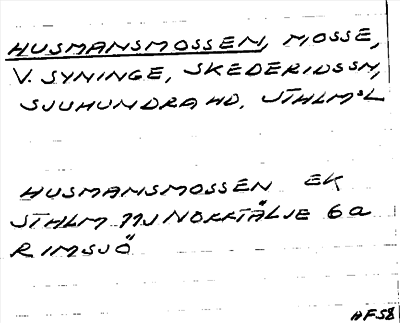 HUSMANSMOSSEN, MOSSE,
V. SYNINGE, SKEDERIDSSN,
SJUHUNDRA HD, STHLMSL
HUSMANSMOSSEN EK
STHLM 11J NORRTÄLJE 6a
RIMSJÖ
AFS8